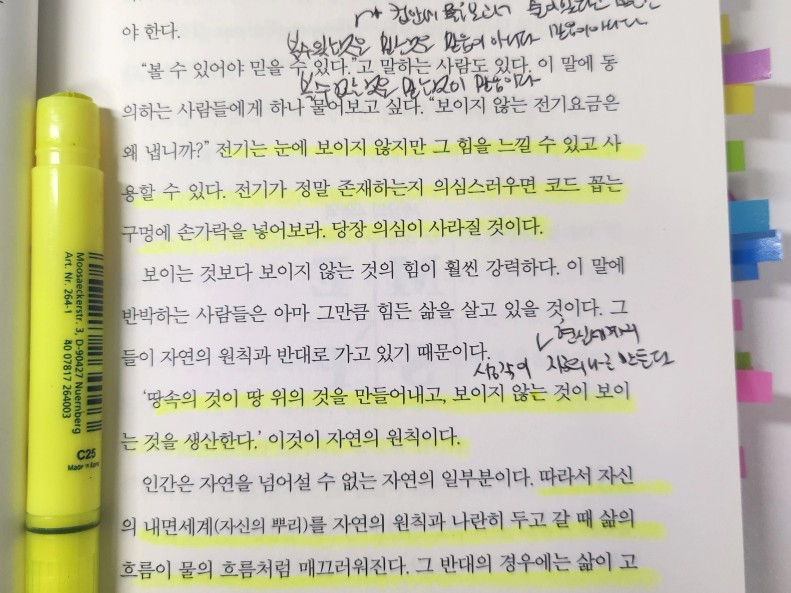 야 한다.
볼 수 없는 것은 믿는 것은 믿음이 아니다
“볼 수 있어야 믿을 수 있다.”고 말하는 사람도 있다. 이 말에 동
의하는 사람들에게 하나 물어보고 싶다. “보이지 않는 전기요금은
왜 냅니까?” 전기는 눈에 보이지 않지만 그 힘을 느낄 수 있고 사
용할 수 있다. 전기가 정말 존재하는지 의심스러우면 코드 꼽는
구멍에 손가락을 넣어보라. 당장 의심이 사라질 것이다.
보이는 것보다 보이지 않는 것의 힘이 훨씬 강력하다. 이 말에
반박하는 사람들은 아마 그만큼 힘든 삶을 살고 있을 것이다. 그
들이 자연의 원칙과 반대로 가고 있기 때문이다.
만든다
‘땅속의 것이 땅 위의 것을 만들어내고, 보이지 않는 것이 보이
는 것을 생산한다.’ 이것이 자연의 원칙이다.
인간은 자연을 넘어설 수 없는 자연의 일부분이다. 따라서 자신
의 내면세계(자신의 뿌리)를 자연의 원칙과 나란히 두고 갈 때 삶의
흐름이 물의 흐름처럼 매끄러워진다. 그 반대의 경우에는 삶이 고
Moosaeckerstr. 3, D-90427 Nuernberg
Art. Nr. 264-1
40 07817 264003
C25
Made in